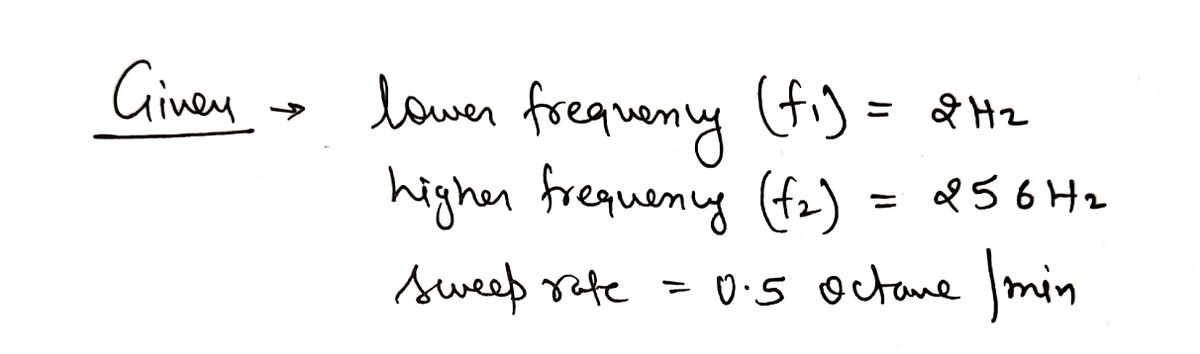 Given → lower frequency (f1) = 2 Hz
higher frequency (f2) = 256 Hz
sweep rate = 0.5 octave /min